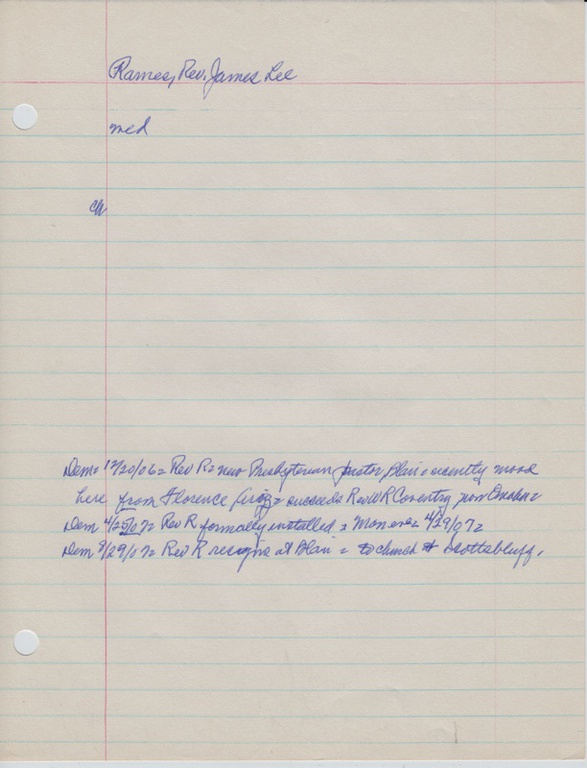 Rames, Rev. James Lee
med
ch
Dem = 12/20/06 = Rev R = new Presbyterian pastor Blair = recently moved
here from Florence Ariz = succeeds Rev W R Coventry now Omaha =
Dem 4/25/07 = Rev R formally installed = Mon eve = 4/29/07 =
Dem 8/29/07 = Rev R resigns at Blair = to church at Scottsbluff.